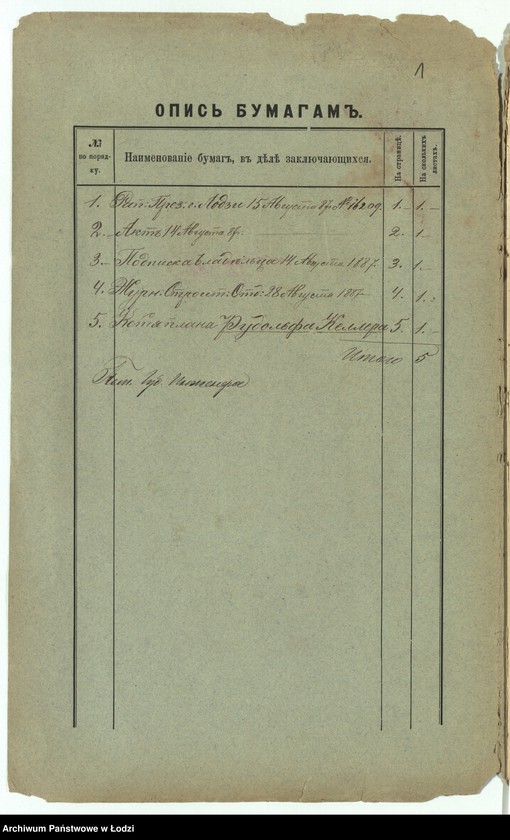 1
ОПИСЬ БУМАГАМЪ.
№ по порядку.
Наименованіе бумагъ, въ дѣлѣ заключающихся.
На страницѣ.
На сколькихъ листахъ.
1. Рап: През. г. Лодзи 15 Августа № 1. 1.
2. Актъ 14 Августа 2. 1
3. Подписка Владѣльца 14 Августа 1887 3. 1.
4. Журн. Строит: Отд: 28 Августа 1887 4. 1.
5. Копія плана Рудольфа Келлера 5. 1.
Итого 5
Губ.
Archiwum Państwowe w Łodzi